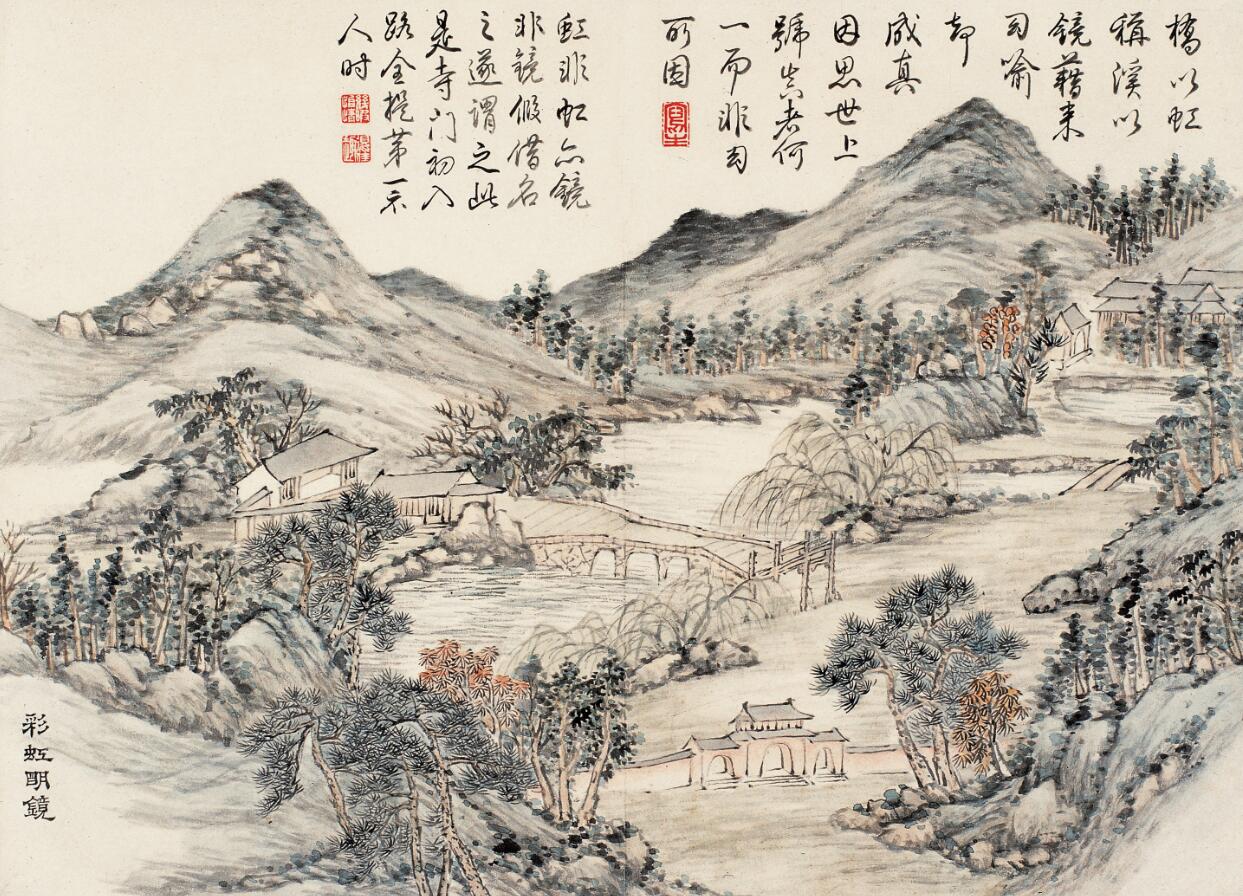 橋以虹
稱溪以
鏡藉來
幻喻
却
成真
因思世上
號真者何
一而非幻
所因
虹非虹亦鏡
非鏡假借名
之遂謂之此
是寺門初入
路全提第一示
人时
彩虹明鏡